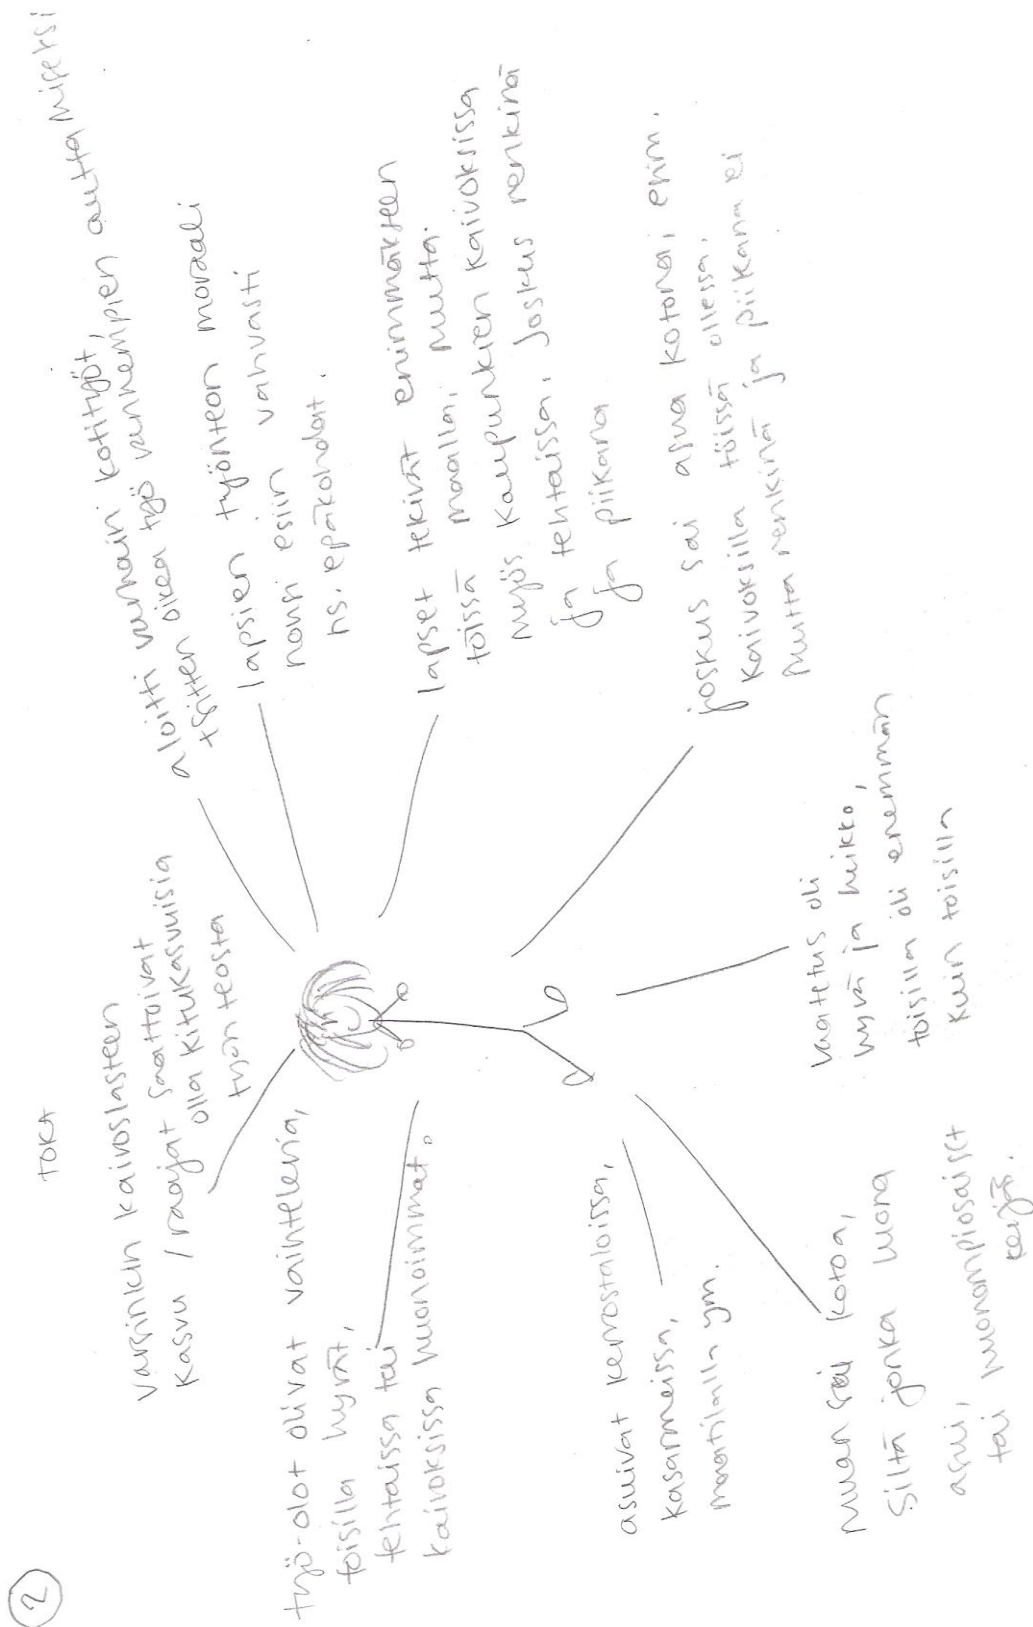 ②
TOKA
varsinkin kaivoslasten
kasvu / raajat saattoivat
olla kitukasvuisia
työn teosta
aloitti varhain kotityöt,
+ sitten oikea työ vanhempien auttamiseksi
lapsien työnteon moraali
nousi esiin vahvasti
ns. epäkohdat.
lapset tekivät enimmäkseen
töissä maalla, mutta
myös kaupunkien kaivoksissa
ja tehtaissa, Joskus renkinä
ja piikana
joskus sai asua kotona, esim.
kaivoksilla töissä ollessa,
mutta renkinä ja piikana ei
vaatetus oli
hyvä ja heikko,
toisilla oli enemmän
kuin toisilla
ruuan sai kotoa,
siltä jonka luona
asui, huonompiosaiset
tai kerjäs.
asuivat kerrostaloissa,
kasarmeissa,
maatilalla ym.
työ-olot olivat vaihtelevia,
toisilla hyvät,
tehtaissa tai
kaivoksissa huonoimmat.